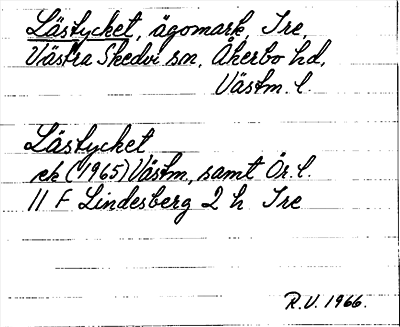 Lästycket, ägomark, Tre,
Västra Skedvi sn, Åkerbo hd,
Västm. l.
Lästycket
ek (1965) Västm, samt Ör. l.
11 F Lindesberg 2 h Tre
R.V. 1966.